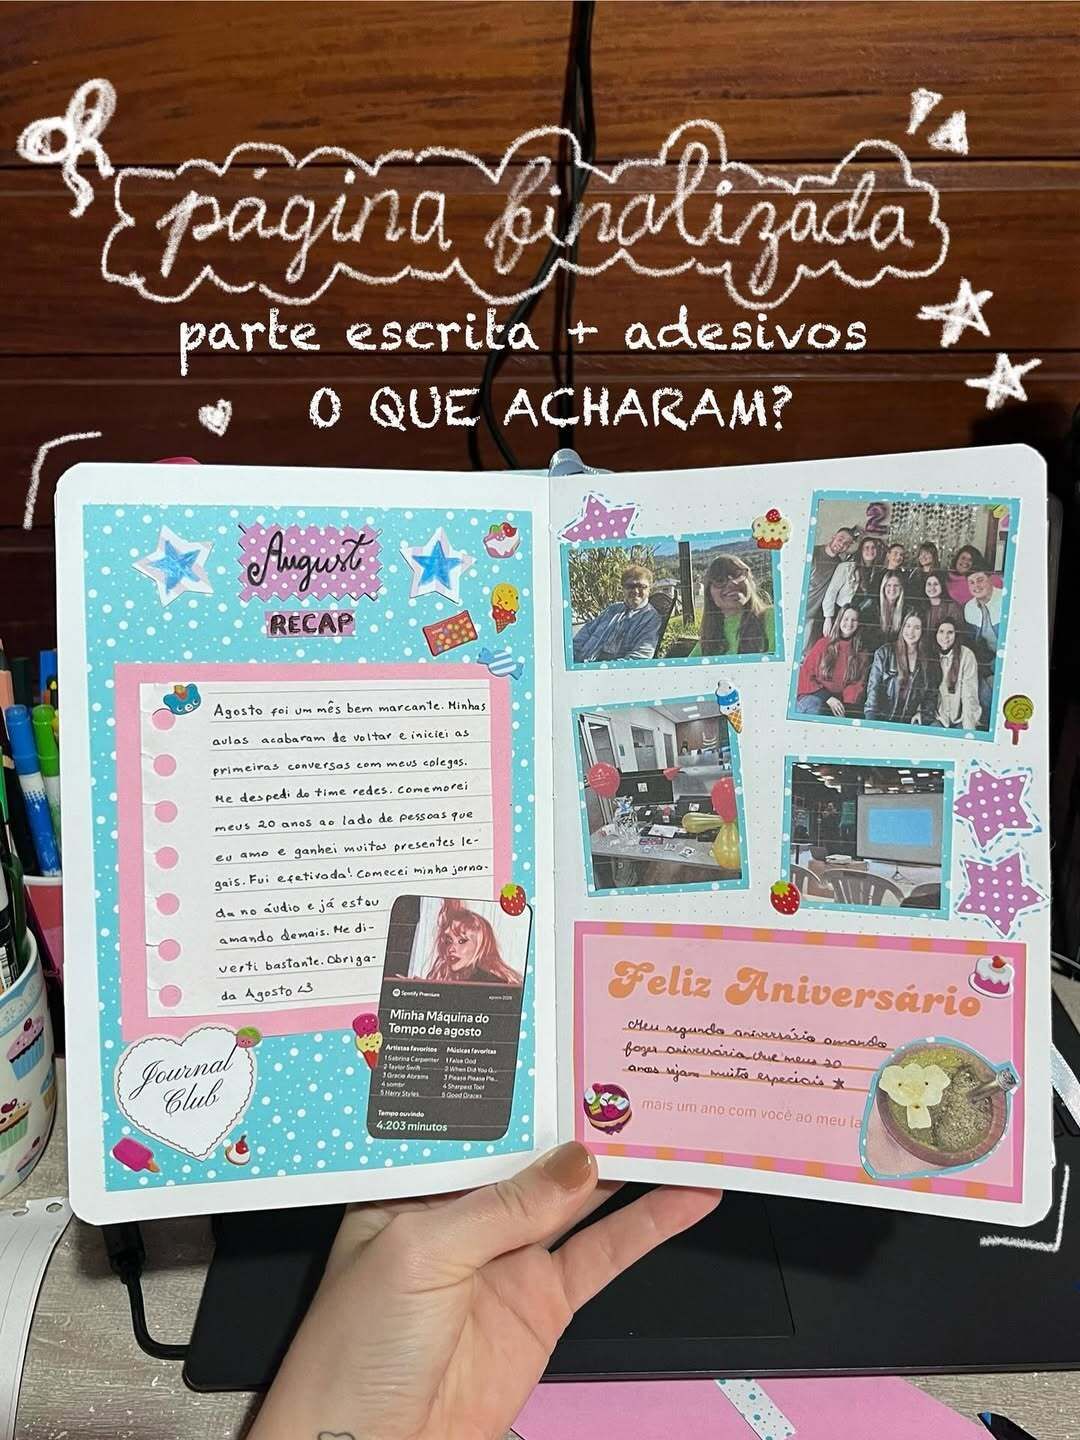 página finalizada
parte escrita + adesivos
O QUE ACHARAM?
August
RECAP
Agosto foi um mês bem marcante. Minhas
aulas acabaram de voltar e iniciei as
primeiras conversas com meus colegas.
Me despedi do time redes. Comemorei
meus 20 anos ao lado de pessoas que
eu amo e ganhei muitos presentes le-
gais. Fui efetivada! Comecei minha jorna-
da no áudio e já estou
amando demais. Me di-
verti bastante. Obriga-
da Agosto <3
Spotify Premium
Minha Máquina do
Tempo de agosto
Artistas favoritos
1 Sabrina Carpenter
2 Taylor Swift
3 Gracie Abrams
4 sombr
5 Harry Styles
Músicas favoritas
1 False God
2 When Did You G...
3 Please Please Ple...
4 Sharpest Tool
5 Good Graces
Tempo ouvindo
4.203 minutos
Journal
Club
2
Feliz Aniversário
Meu segundo aniversário amando
fazer aniversário. Que meus 20
anos sejam muito especiais
mais um ano com você ao meu la